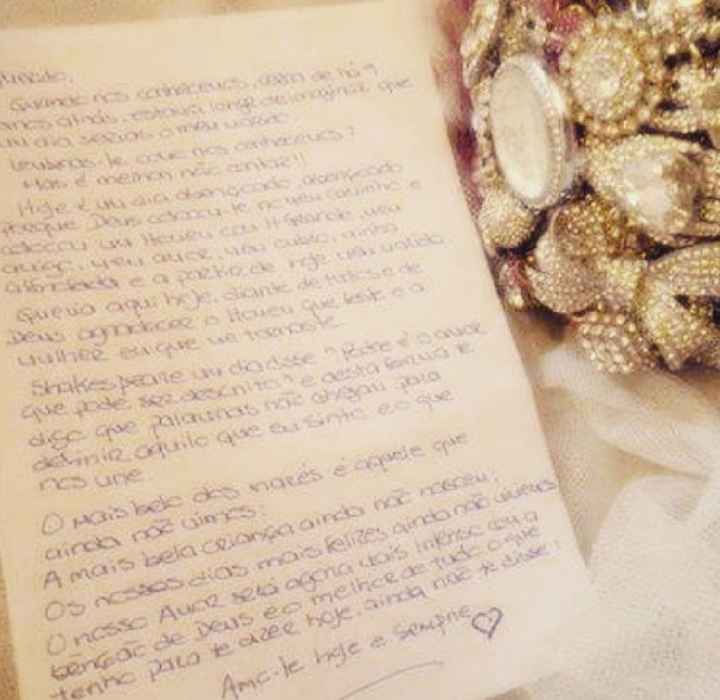 Quando nos conhecemos, cerca de há 9
anos atrás, estava longe de imaginar que
um dia serias o meu marido.
Lembras-te como nos conhecemos?
Mas é melhor não contar!!
Hoje é um dia abençoado, abençoado
porque Deus colocou-te no meu caminho e
colocou um Homem com H Grande, meu
amigo, meu amor, meu , minha
e a partir de hoje meu marido.
Queria aqui hoje, diante de todos e de
Deus agradecer o Homem que és e a
mulher em que me tornaste.
Shakespeare um dia disse "Pobre é o amor
que pode ser descrito" e desta forma te
digo que palavras não chegam para
definir aquilo que eu sinto e o que
nos une.
O mais belo dos mares é aquele que
ainda não vimos.
A mais bela criança ainda não nasceu.
Os nossos dias mais felizes ainda não vivemos
O nosso Amor será agora mais intenso com a
benção de Deus e o melhor de tudo o que
tenho para te dizer hoje, ainda não te disse!
Amo-te hoje e sempre